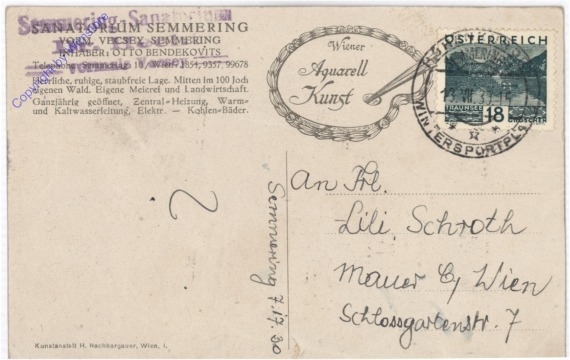 Semmering Sanatorium
SANATORIUM SEMMERING
VORM. VECSEY, SEMMERING
INHABER: OTTO BENDEKOVITS
Telephon: Semmering 10, Wien 9357, 99678
Herrliche, ruhige, staubfreie Lage. Mitten im 100 Joch
eigenen Wald. Eigene Meierei und Landwirtschaft.
Ganzjährig geöffnet, Zentral-Heizung, Warm-
und Kaltwasserleitung, Elektr. — Kohlen-Bäder.
Wiener
Aquarell
Kunst
ÖSTERREICH
TRAUNSEE
18
GROSCHEN
WINTERSPORTPL
An Frl.
Lili Schroth
Mauer b/ Wien
Schlossgartenstr. 7
Semmering 7.VII.30
Kunstanstalt H. Nachbargauer, Wien, I.